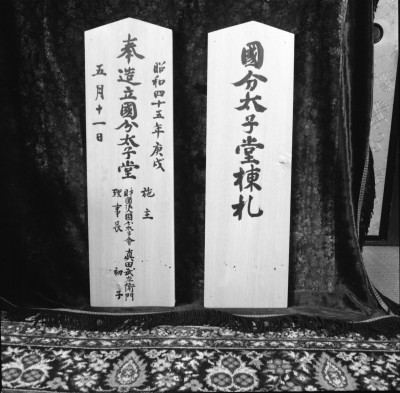 國分太子堂棟札
奉造立國分太子堂
昭和四十五年庚戌
五月十一日
施主
理事長
眞田武左衛門
初子